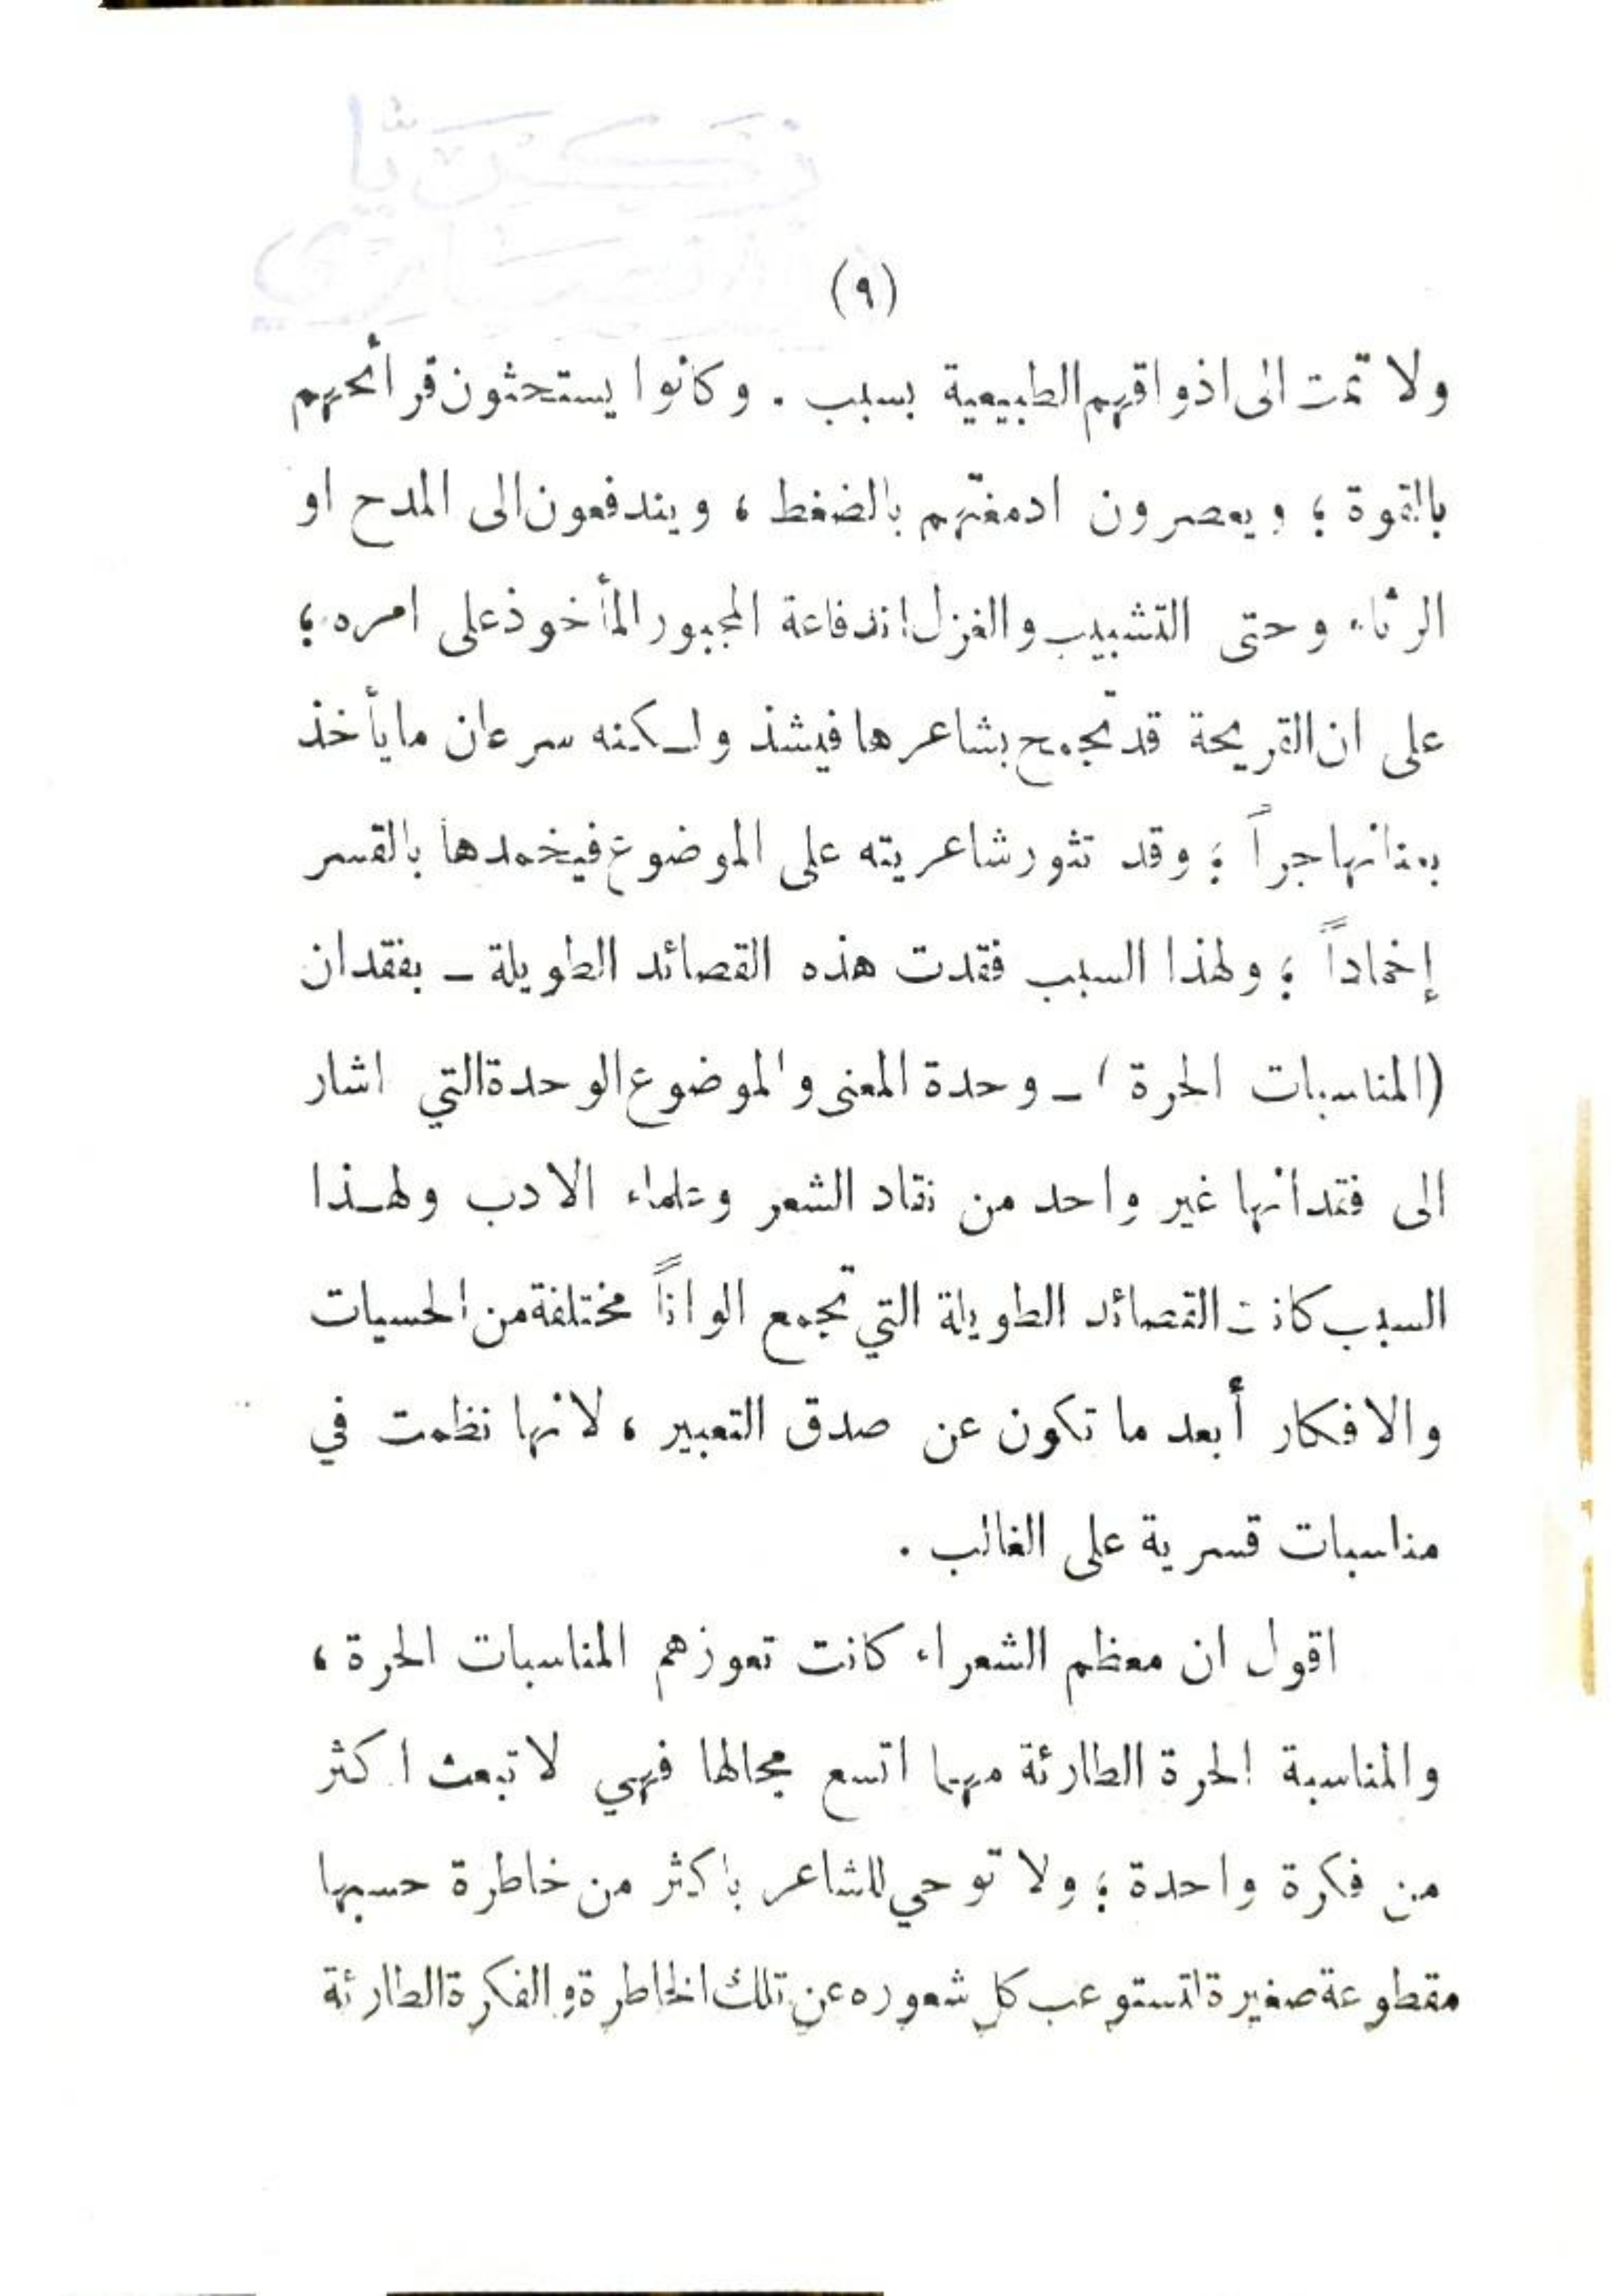 (٩)
ولا تمت الى اذواقهم الطبيعية بسبب . وكانوا يستحثون قرائحهم
بالقوة ؛ ويعصرون ادمغتهم بالضغط ، ويندفعون الى المدح او
الرثاء وحتى التشبيب والغزل اندفاعة المجبور المأخوذ على امره ؛
على ان القريحة قد تجمح بشاعرها فيشذ ولكنه سرعان ما يأخذ
بعنانها جراً ؛ وقد تثور شاعريته على الموضوع فيخمدها بالقسر
إخماداً ؛ ولهذا السبب فقدت هذه القصائد الطويلة ـ بفقدان
(المناسبات الحرة) ـ وحدة المعنى والموضوع الوحدة التي اشار
الى فقدانها غير واحد من نقاد الشعر وعلماء الادب ولهـذا
السبب كانت القصائد الطويلة التي تجمع الواناً مختلفة من الحسيات
والافكار أبعد ما تكون عن صدق التعبير ، لانها نظمت في
مناسبات قسرية على الغالب .
اقول ان معظم الشعراء كانت تعوزهم المناسبات الحرة ،
والمناسبة الحرة الطارئة مهما اتسع مجالها فهي لا تبعث اكثر
من فكرة واحدة ؛ ولا توحي للشاعر باكثر من خاطرة حسبها
مقطوعة صغيرة لتستوعب كل شعوره عن تلك الخاطرة والفكرة الطارئة